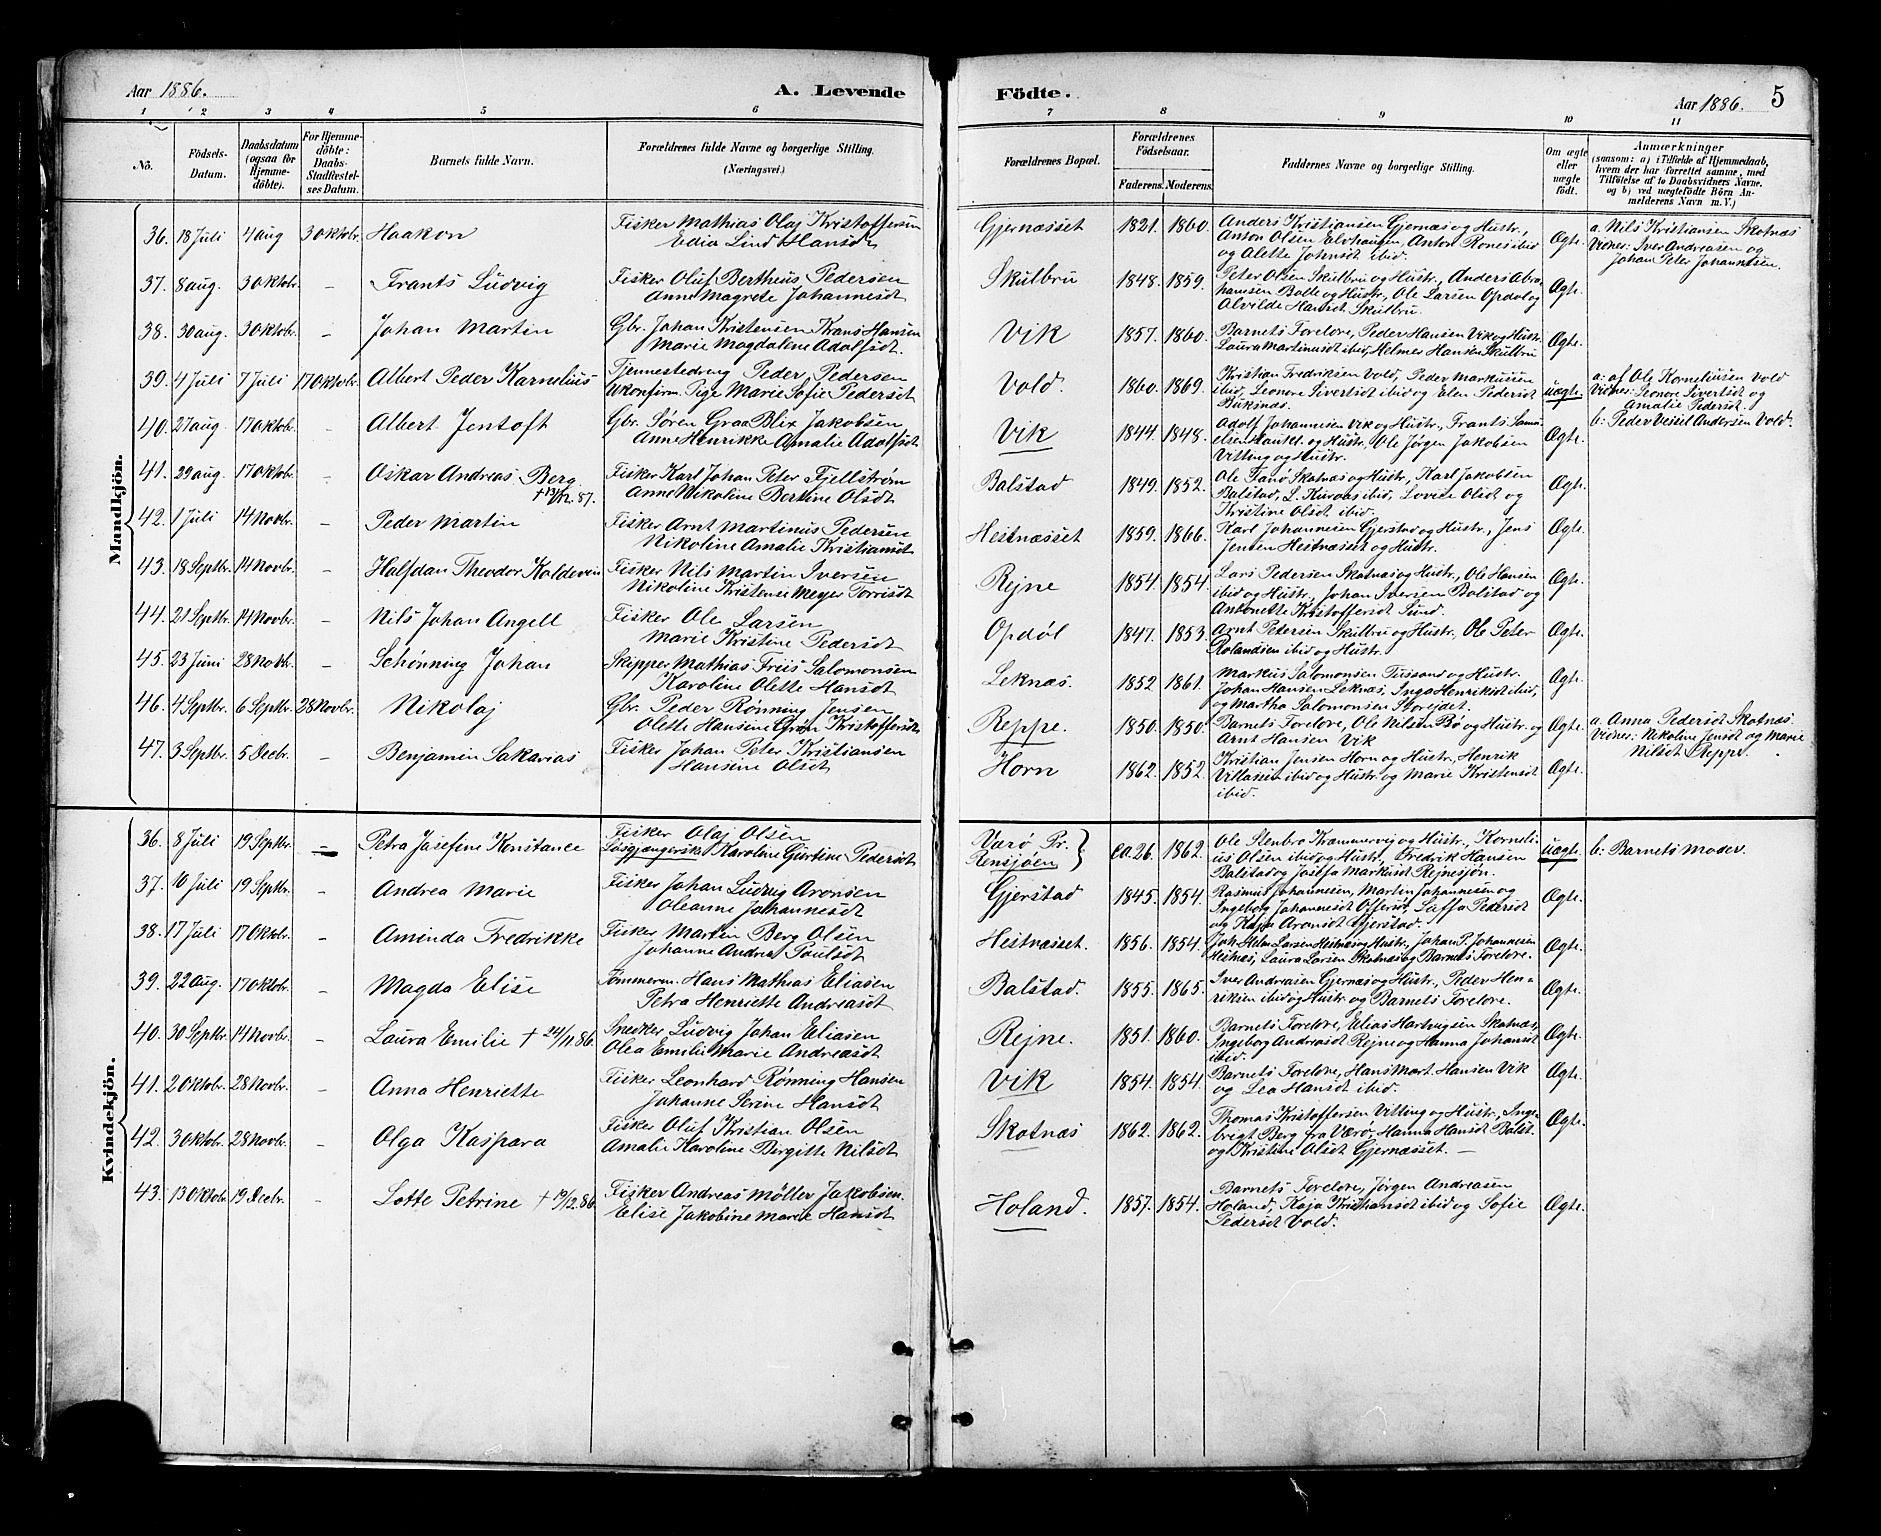 Aar 1886.
A. Levende
Födte.
Aar 1886.
5
1 2 3 4 5 6 7 8 9 10 11
No.
Födsels-Datum.
Daabsdatum (ogsaa for Hjemme-döbte).
For Hjemme-döbte: Daabs-Stadfæstel-ses Datum.
Barnets fulde Navn.
Forældrenes fulde Navne og borgerlige Stilling. (Næringsvei.)
Forældrenes Bopæl.
Forældrenes Födselsaar.
Faderens. Moderens.
Faddernes Navne og borgerlige Stilling.
Om ægte eller uægte födt.
Anmærkninger
(saasom: a) i Tilfælde af Hjemmedaab,
hvem der har forrettet samme, med
Tilföielse af to Daabsvidners Navne,
og b) ved uægtefödte Börn An-
melderens Navn m. V.)
Mandkjön.
36. 18 Juli 4 aug 3 Oktobr. Haakon
Fisker Mathias Olaj Kristoffersen
Edia Lind Hansdt
Gjernæsset 1821. 1860.
Anders Kristiansen Gjernæs og Hustr.,
Anton Olsen Elvhaugen, Anton Rones ibid
og Alette Johnsdt ibid.
Ægte.
a. Nils Kristiansen Skotnæs
Vidner: Iver Andreasen og
Johan Peter Johannesen.
37. 8 aug. 3 Oktobr. - Frants Ludvig
Fisker Oluf Bertheus Pedersen
Anne Magrete Johannesdt
Skulbru 1848. 1859.
Peter Olsen Skulbru og Hustr., Anders Abra-
hamsen Bolte og Hustr., Ole Larsen Opdøl og
Alvilde Hansdt Skulbru.
Ægte.
38. 30 aug. 3 Oktobr. - Johan Martin
Gbr. Johan Kristensen Krans Hansen
Marie Magdalene Adolfsdt.
Vik 1857. 1860.
Barnets Foreldre, Peder Hansen Vik og Hustr.
Laura Martinusdt ibid, Helmer Hansen Skulbru
Ægte.
39. 4 Juli 7 Juli 17 Oktobr. Albert Peder Kornelius
Tjennestedreng Peder Pedersen
Ukonfirm. Pige Marie Sofie Pedersdt
Vold. 1860. 1869.
Kristian Fredriksen Vold, Peder Markussen
ibid, Leonore Sivertsdt ibid og Elen Pedersdt
Buksnæs.
uægte.
a: af Ole Korneliusen Vold
Vidner: Leonore Sivertsdt og
Amalie Pedersdt.
b: Peder Vessil Andersen Vold.
40. 27 aug. 17 Oktobr. - Albert Jentoft
Gbr. Søren Graa Blix Jakobsen
Anne Henrikke Amalie Adolfsdt
Vik 1844. 1848.
Adolf Johannesen Vik og Hustr., Frants Samu-
elsen Haukl. og Hustr., Ole Jørgen Jakobsen
Vitting og Hustr.
Ægte.
41. 29 aug. 17 Oktobr. - Oskar Andreas Berg
87.
Fisker Karl Johan Peter Fjellstrøm
Anne Nikoline Bertine Olsdt
Balstad 1849. 1852.
Ole Fanø Skotnæs og Hustr., Karl Jakobsen
Balstad, L. ibid, Lovise Olsdt og
Kristine Olsdt ibid.
Ægte.
42. 1 Juli 14 Novbr. - Peder Martin
Fisker Arnt Martinus Pedersen
Nikoline Amalie Kristiansdt
Hestnæsset 1859. 1866.
Karl Johannesen Gjerstad og Hustr., Jens
Jensen Hestnæsset og Hustr.
Ægte.
43. 18 Septbr. 14 Novbr. - Halfdan Theodor Koldevin
Fisker Nils Martin Iversen
Nikoline Kristense Meyer Torrisdt
Rejne 1854. 1854.
Lars Pedersen Skotnæs og Hustr., Ole Hansen
ibid og Hustr., Johan Iversen Balstad og
Antonette Kristoffersdt Sund.
Ægte.
44. 21 Septbr. 14 Novbr. - Nils Johan Angell
Fisker Ole Larsen
Marie Kristine Pedersdt
Opdøl 1847. 1853.
Arnt Petersen Skulbru og Hustr., Ole Peter
Rolandsen ibid og Hustr.
Ægte.
45. 23 Juni 28 Novbr. - Schønning Johan
Skipper Mathias Friis Salomonsen
Karoline Olette Hansdt
Leknæs. 1852 1861.
Markus Salomonsen Tussand og Hustr.
Johan Hansen Leknæs, Inga Henriksdt ibid,
og Martha Salomonsen Storejdet.
Ægte.
46. 4 Septbr. 6 Septbr. 28 Novbr. Nikolaj
Gbr. Peder Rønning Jensen
Olette Hansine Grøn Kristoffersdt
Reppe. 1850. 1850.
Barnets Forelore, Ole Nilsen Bø og Hustr. og
Arnt Hansen Vik
Ægte.
a. Anna Pedersdt Skotnæs.
Vidner: Nikoline Jensdt og Marie
Nilsdt Reppe.
47. 3 Septbr. 5 Decbr. - Benjamin Sakarias
Fisker Johan Peter Kristiansen
Hansine Olsdt
Horn 1862. 1852.
Kristian Jensen Horn og Hustr., Henrik
ibid og Hustr. og Marie Kristensdt
ibid.
Ægte.
Kvindekjön.
36. 8 Juli 19 Septbr. - Petra Josefine Konstance
Fisker Olaj Olsen
Løsgjængerske Karoline Gjertine Pedersdt
Værø Pr.
Rensjøen
ca. 26. 1862.
Ole Stenbro Krammervig og Hustr., Korneli-
us Olsen ibid og Hustr., Fredrik Hansen
Balstad og Josefa Markusdt Rejnesjøn.
uægte.
b: Barnets moder.
37. 10 Juli 19 Septbr. - Andrea Marie
Fisker Johan Ludvig Aronsen
Oleanne Johannesdt
Gjerstad 1845. 1854.
Rasmus Johannesen, Martin Johannesen og
Ingeborg Johannesdt Offersø, Saffa Pedersdt
og Kaja Aronsdt Gjerstad.
Ægte.
38. 17 Juli 17 Oktobr. - Aminda Fredrikke
Fisker Martin Berg Olsen
Johanne Andrea Paulsdt
Hestnæsset. 1856. 1854.
Joh. Helm Larsen Hestnæs og Hustr., Johan P. Johannesen
Hestnæs, Laura Larsen Skotnæs og Barnets Forelore.
Ægte.
39. 22 Aug. 17 Oktobr. - Magda Elise
Tømmerm. Hans Mathias Eliasen
Petra Henriette Andreasdt
Balstad. 1855. 1865.
Iver Andreasen Gjernæs og Hustr., Peder Hen-
riksen ibid og Hustr. og Barnets Forelore.
Ægte.
40. 30 Septbr. 14 Novbr. - Laura Emilie † 24/11 86.
Snedker Ludvig Johan Eliasen
Olea Emilie Marie Andreasdt
Rejne. 1851. 1860.
Barnets Forelore, Elias Hartvigsen Skotnæs,
Ingeborg Andreasdt Rejne og Hanna Johansdt
ibid.
Ægte.
41. 2 Oktobr. 28 Novbr. - Anna Henriette
Fisker Leonhard Rønning Hansen
Johanne Serine Hansdt
Vik 1854. 1854.
Barnets Forelore, Hans Mart. Hansen Vik
og Lea Hansdt ibid.
Ægte.
42. 3 Oktobr. 28 Novbr. - Olga Kaspara
Fisker Oluf Kristian Olsen
Amalie Karoline Birgitte Nilsdt
Skotnæs 1862. 1862.
Thomas Kristoffersen Vitting og Hustr., Inge-
brigt Berg fra Værø, Hanna Hansdt Balst.
og Kristine Olsdt Gjernæsset. —
Ægte.
43. 13 Oktobr. 19 Decbr. - Lotte Petrine † 19/12 86.
Fisker Andreas Møller Jakobsen.
Elise Jakobine Marie Hansdt
Holand. 1857. 1854.
Barnets Forelore, Jørgen Andreasen
Holand, Kaja Kristiansdt ibid og Sofie
Pedersdt Vold.
Ægte.